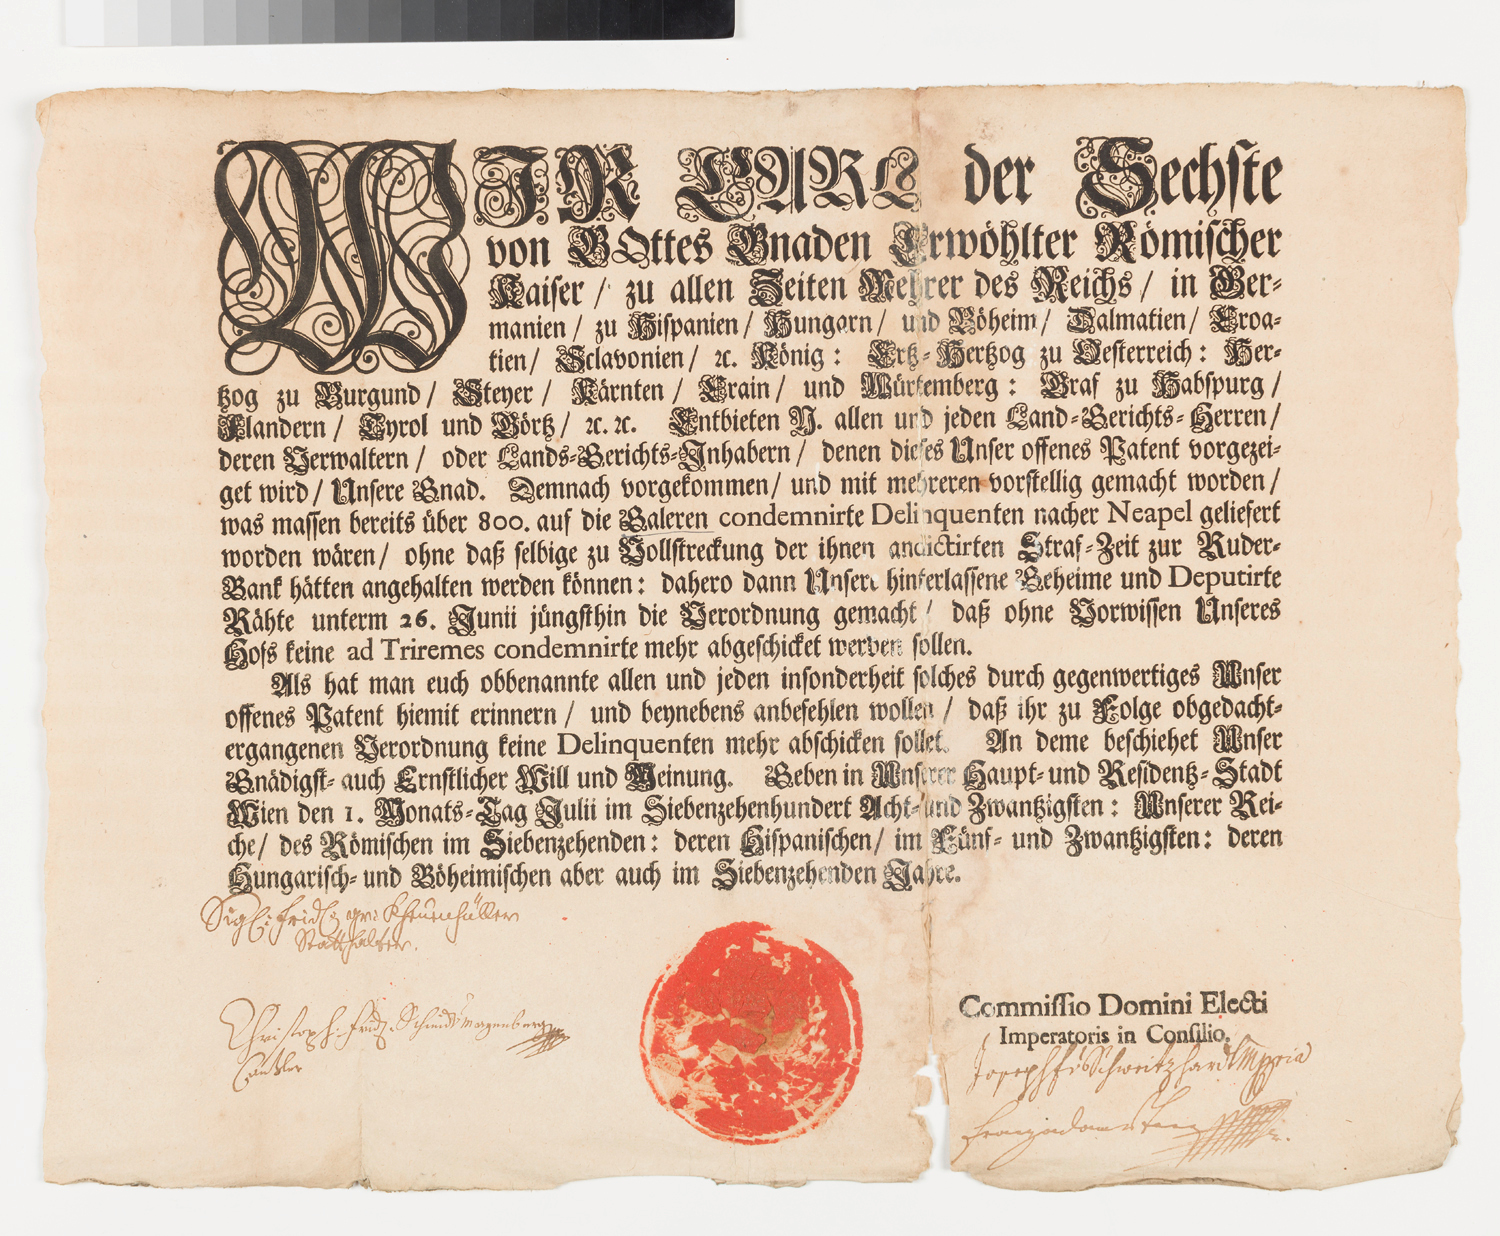 WIR CARL der Sechste
von GOttes Gnaden Erwöhlter Römischer
Kaiser / zu allen Zeiten Mehrer des Reichs / in Ger-
manien / zu Hispanien / Hungarn / und Böheim / Dalmatien / Croa-
tien / Sclavonien / ꝛc. König : Ertz-Hertzog zu Oesterreich : Her-
tzog zu Burgund / Steyer / Kärnten / Crain / und Würtemberg : Graf zu Habspurg /
Flandern / Tyrol und Görtz / ꝛc. ꝛc. Entbieten N. allen und jeden Land-Gerichts-Herren /
deren Verwaltern / oder Lands-Gerichts-Inhabern / denen dieses Unser offenes Patent vorgezei-
get wird / Unsere Gnad. Demnach vorgekommen / und mit mehreren vorstellig gemacht worden /
was massen bereits über 800. auf die Galeren condemnirte Delinquenten nacher Neapel geliefert
worden wären / ohne daß selbige zu Vollstreckung der ihnen andictirten Straf-Zeit zur Ruder-
Banck hätten angehalten werden können : dahero dann Unsere hinterlassene Geheime und Deputirte
Rähte unterm 26. Junii jüngsthin die Verordnung gemacht / daß ohne Vorwissen Unseres
Hofs keine ad Triremes condemnirte mehr abgeschicket werden sollen.
Als hat man euch obbenannte allen und jeden insonderheit solches durch gegenwertiges Unser
offenes Patent hiemit erinnern / und beynebens anbefehlen wollen / daß ihr zu Folge obgedacht-
ergangenen Verordnung keine Delinquenten mehr abschicken sollet. An deme beschiehet Unser
Gnädigst- auch Ernstlicher Will und Meinung. Geben in Unserer Haupt- und Residentz-Stadt
Wien den 1. Monats-Tag Julii im Siebenzehenhundert Acht- und Zwantzigsten : Unserer Rei-
che / des Römischen im Siebenzehenden : deren Hispanischen / im Fünf- und Zwantzigsten : deren
Hungarisch- und Böheimischen aber auch im Siebenzehenden Jahre.
Sigl: Fridl: gr: Khevenhüller
Statthalter.
Christoph: Fridr: Schmidt
Cantzler
Commissio Domini Electi
Imperatoris in Consilio.
Joseph Schweitzhardt